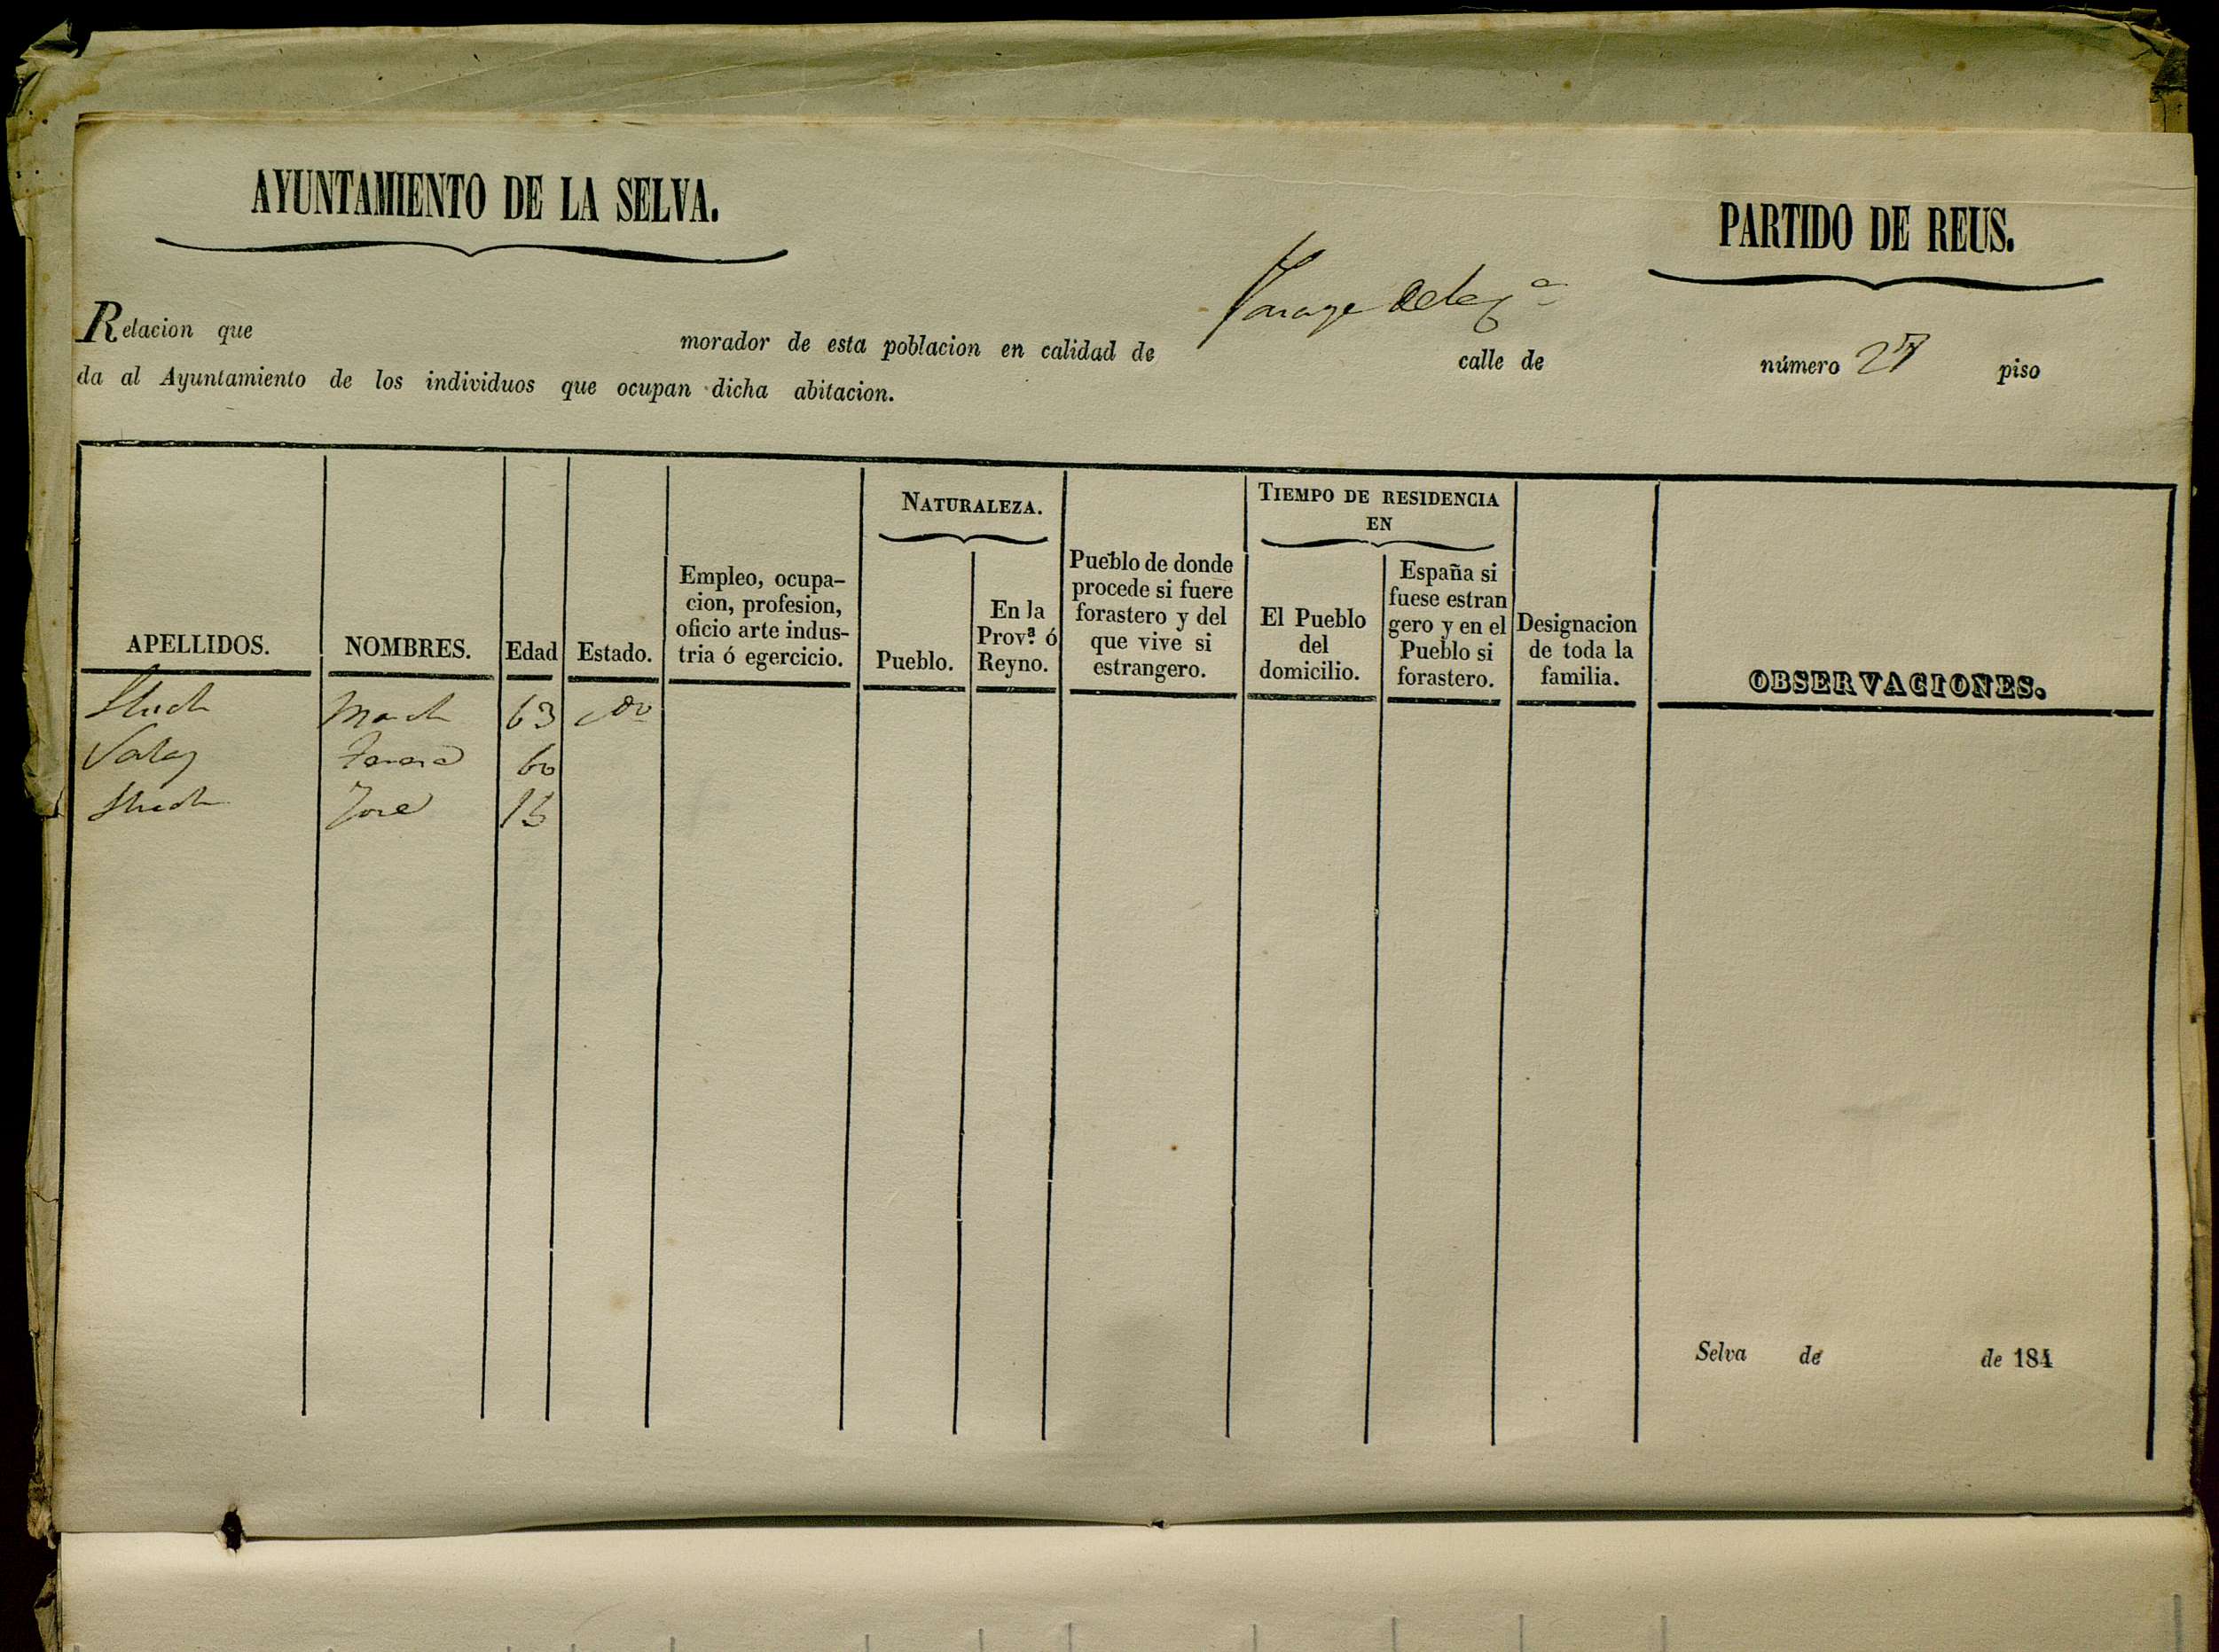 AYUNTAMIENTO DE LA SELVA.
PARTIDO DE REUS.
Relacion que morador de esta poblacion en calidad de calle de número 27 piso
da al Ayuntamiento de los individuos que ocupan dicha abitacion.
APELLIDOS.
NOMBRES.
Edad
Estado.
Empleo, ocupa-
cion, profesion,
oficio arte indus-
tria ó egercicio.
NATURALEZA.
Pueblo.
En la
Provª. ó
Reyno.
Pueblo de donde
procede si fuere
forastero y del
que vive si
estrangero.
TIEMPO DE RESIDENCIA
EN
El Pueblo
del
domicilio.
España si
fuese estran
gero y en el
Pueblo si
forastero.
Designacion
de toda la
familia.
OBSERVACIONES.
63
60
José 15
Selva de de 184